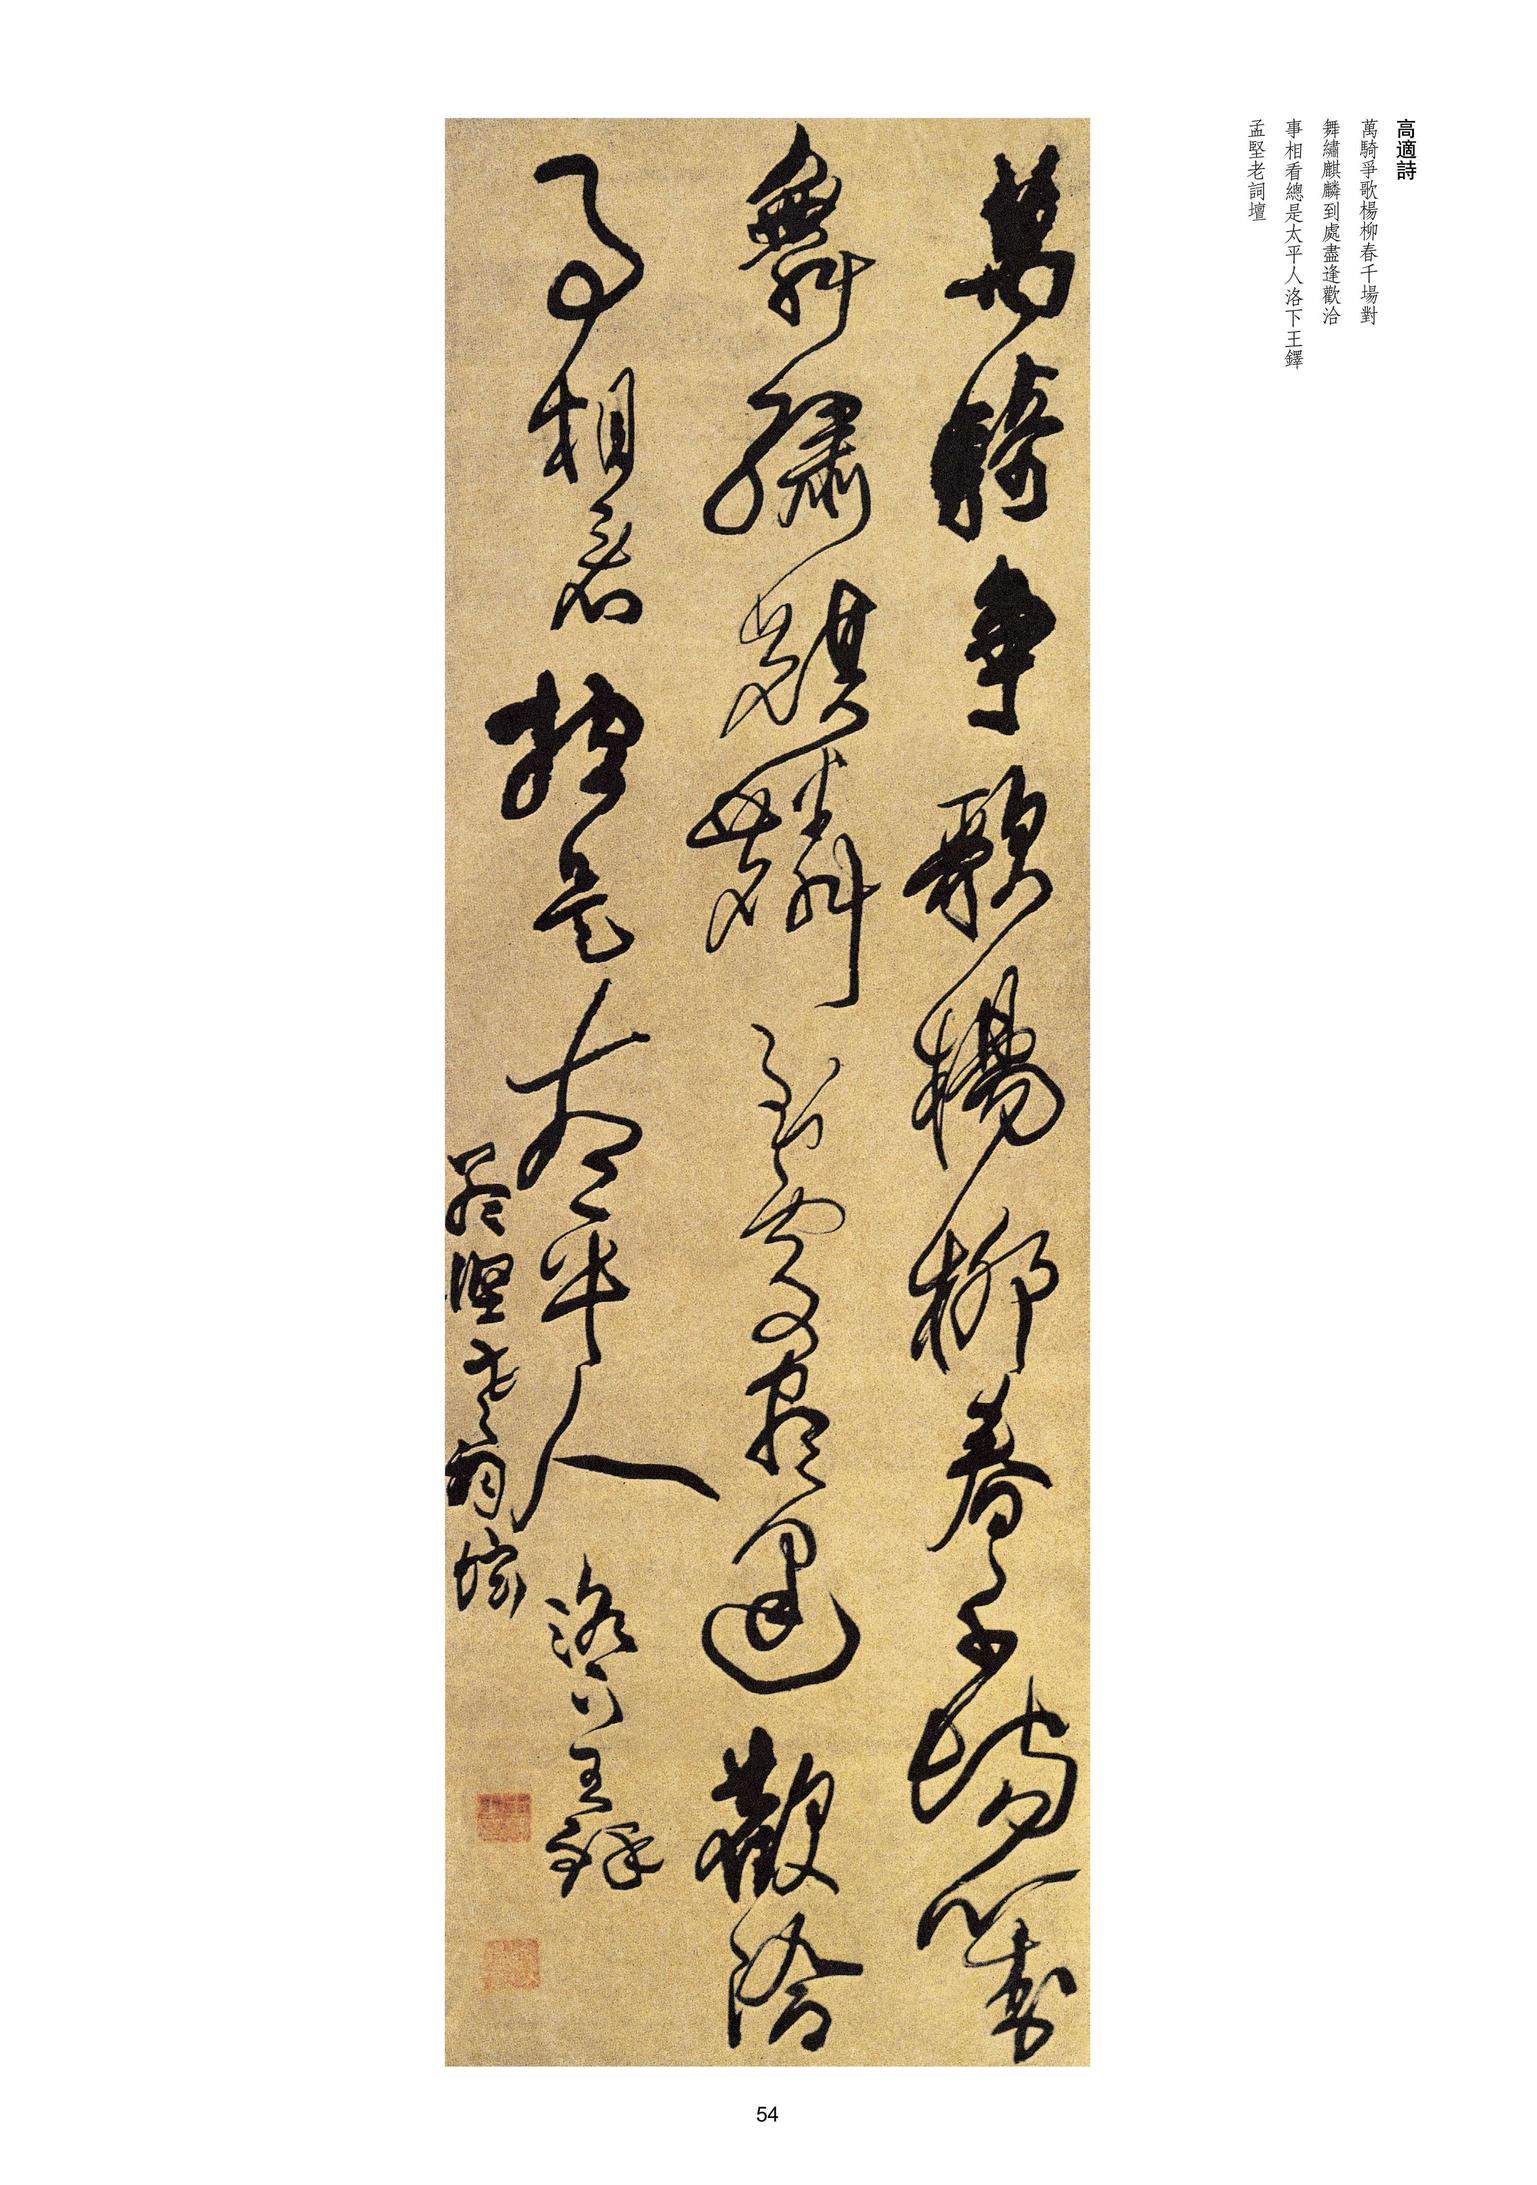 高適詩
萬騎爭歌楊柳春千場對
舞繡麒麟到處盡逢歡洽
事相看總是太平人洛下王鐸
孟堅老詞壇
萬騎爭歌楊柳春千場對
舞繡麒麟到處盡逢歡洽
事相看總是太平人洛下王鐸
孟堅老詞壇
54